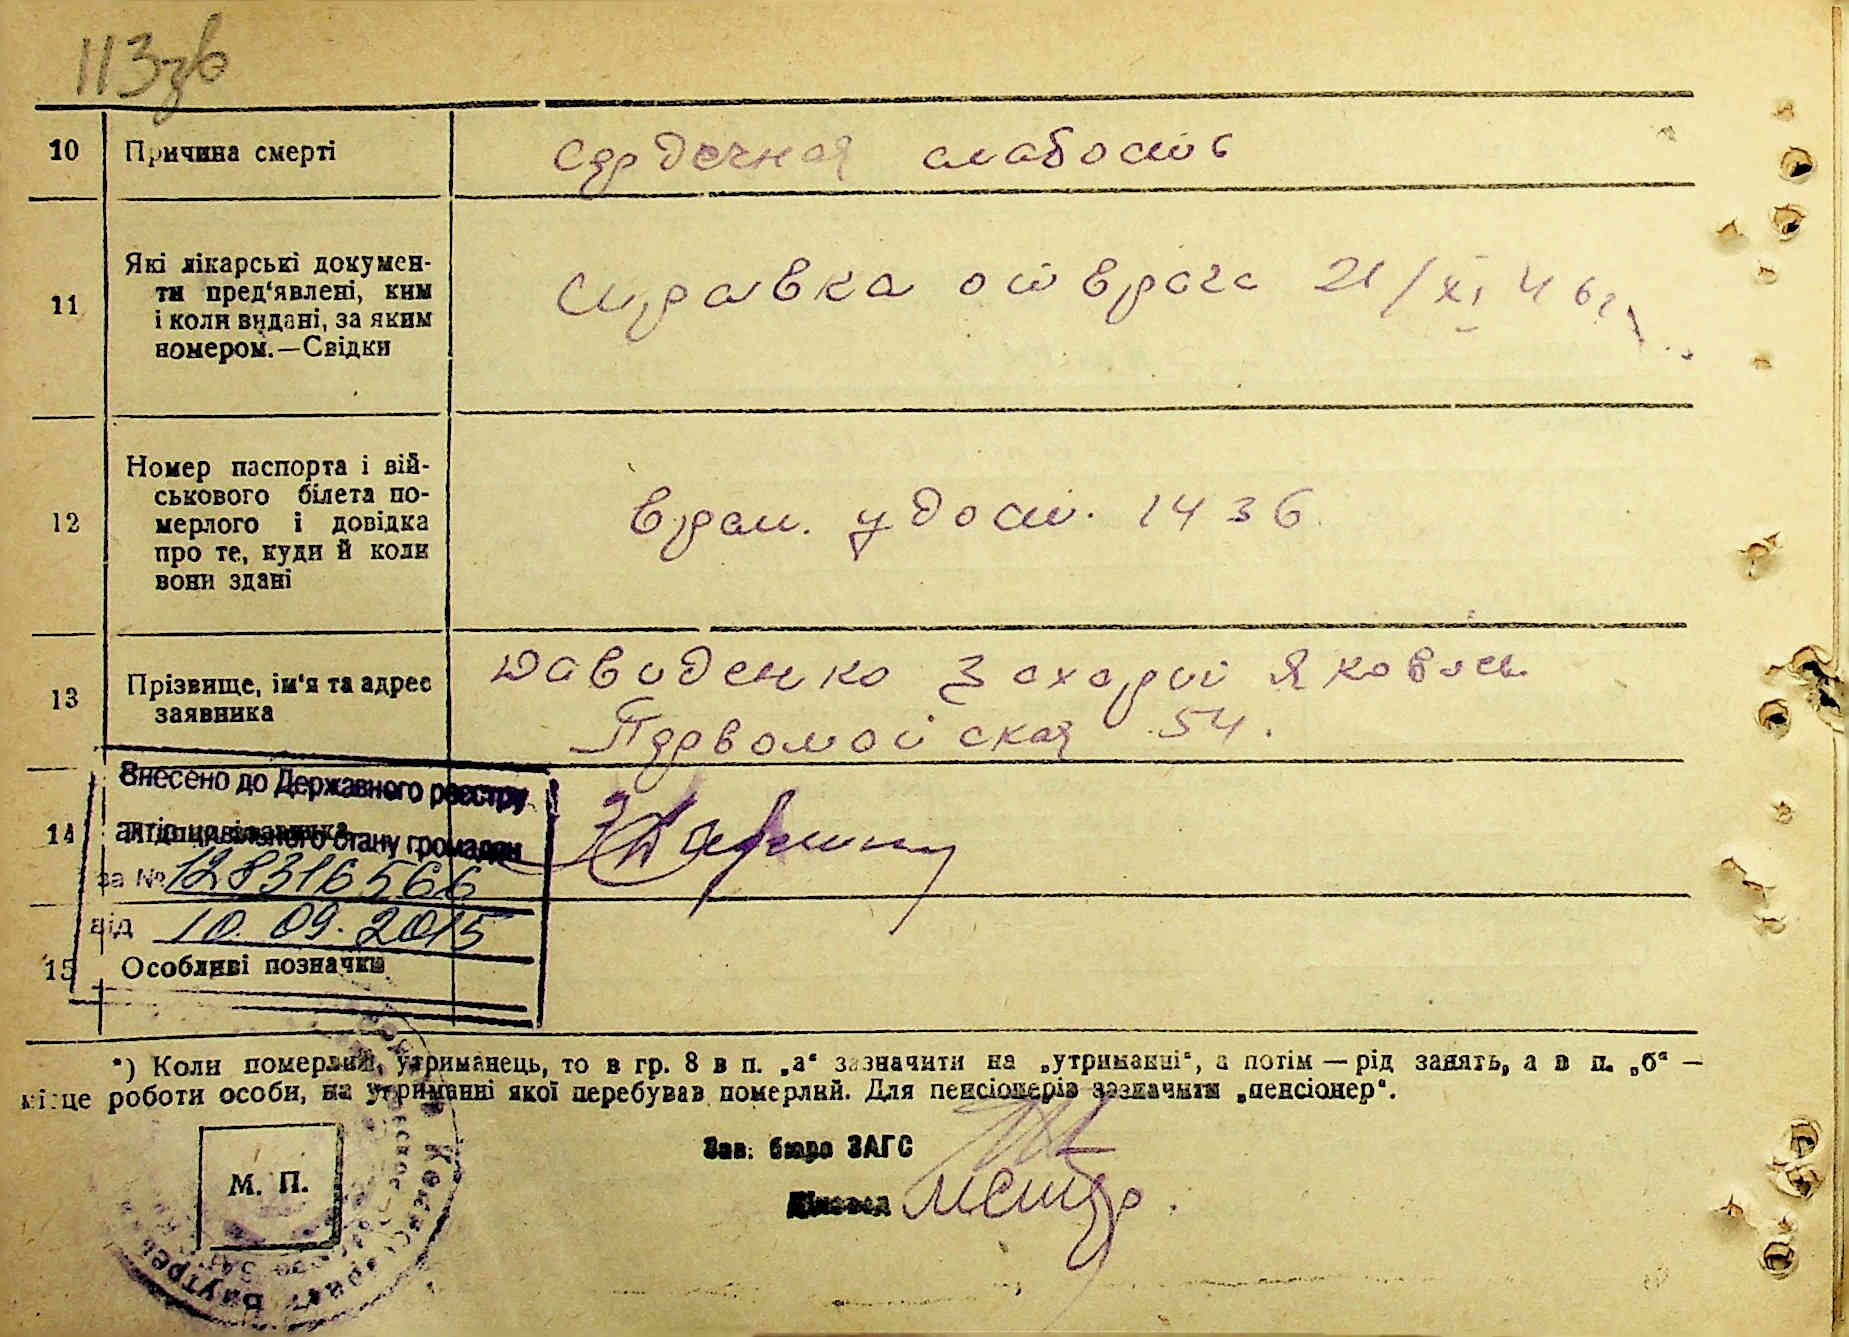 113 зв
10 Причина смерті Сердечная слабость
11 Які лікарські докумен-
ти пред'явлені, ким
і коли видані, за яким
номером.—Свідки
Справка от врача 21/XI 46 г.
12 Номер паспорта і вій-
ськового білета по-
мерлого і довідка
про те, куди й коли
вони здані
врем. удост. 1436
13 Прізвище, ім'я та адрес
заявника
Давиденко Захарий Яковлев.
Первомойская 54.
Внесено до Державного реєстру
14 актів цивільного стану громадян
за № 128316566
від 10.09.2015
15 Особливі позначки
*) Коли померлий, утриманець, то в гр. 8 в п. „а“ зазначити на „утриманні“, а потім — рід занять, а в п. „б“ —
місце роботи особи, на утриманні якої перебував померлий. Для пенсіонерів зазначити „пенсіонер“.
Зав. бюро ЗАГС
М. П.
Діловод